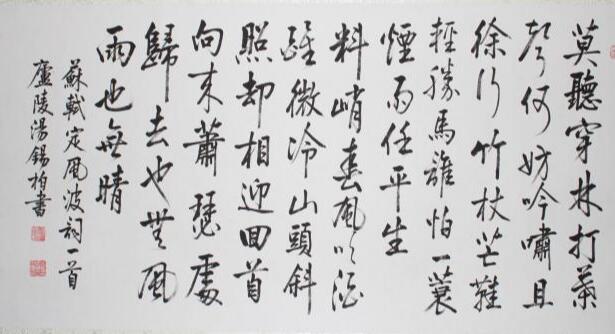 莫聽穿林打葉
聲何妨吟嘯且
徐行竹杖芒鞋
輕勝馬誰怕一蓑
煙雨任平生
料峭春風吹酒
醒微冷山頭斜
照却相迎回首
向来蕭瑟處
歸去也無風
雨也無晴
蘇軾定風波詞一首
廬陵湯錫柏書